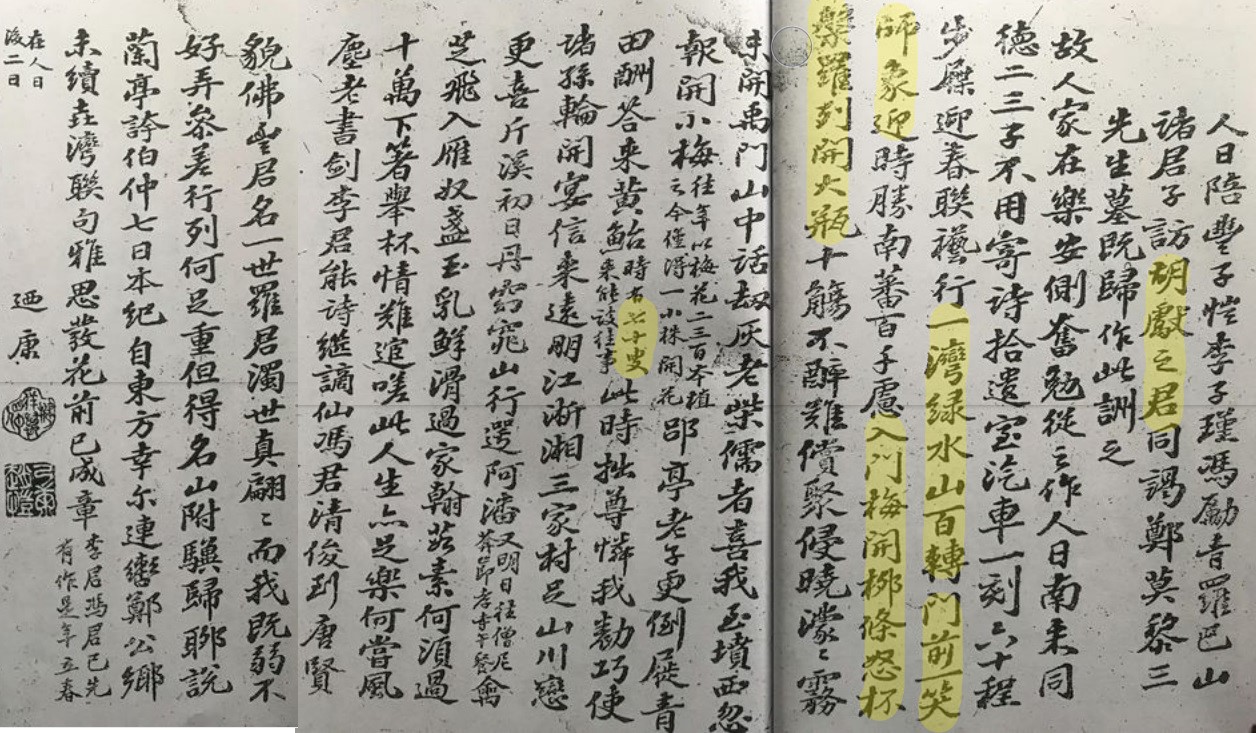 人日陪豐子愷李子瑾馮勵青羅邑山
諸居子訪胡獻之君同謁鄭莫黎三
先生墓既歸作此訓之
故人家在樂安側奮勉從之作人日南來同
德二三子不用寄詩拾遺宅汽車一刻六十程
步屧迎春聯襼行一灣綠水山百轉門前一笑
師象迎時勝南蕃百子慮入門梅開柳條怒杯
槃羅到開大瓶十觴不醉難償聚侵曉濛〻霧
未開禹門山中話劫灰老柴儒者喜我至墳西忽
報開小梅往年以梅花二三百本植之今僅得一小株開花郘亭老子更倒屣青
田酬答來黃鮐時有七十叟來能談往事此時拙尊憐我勸巧使
諸孫輪開宴信來遠明江淅湘三家村足山川戀
更喜斤溪初日丹窈窕山行選阿潘又明日往僧尼孝寺午餐禽
芝飛入雁奴盞玉乳鮮滑過家翰蔬素何須過
十萬下箸舉杯情難逭嗟此人生亦足樂何當風
塵老書劍李君能詩繼謫仙馮君清俊到唐賢
貌佛豐君名一世羅君濁世真翩〻而我既弱不
好弄參差行列何足重但得名山附驥歸聊說
蘭亭誇伯仲七日本紀自東方幸尔連鑣鄭公鄉
未續垚灣聯句雅思發花前已成章李居馮君已先有作是年立春
在人日後二日
迺康